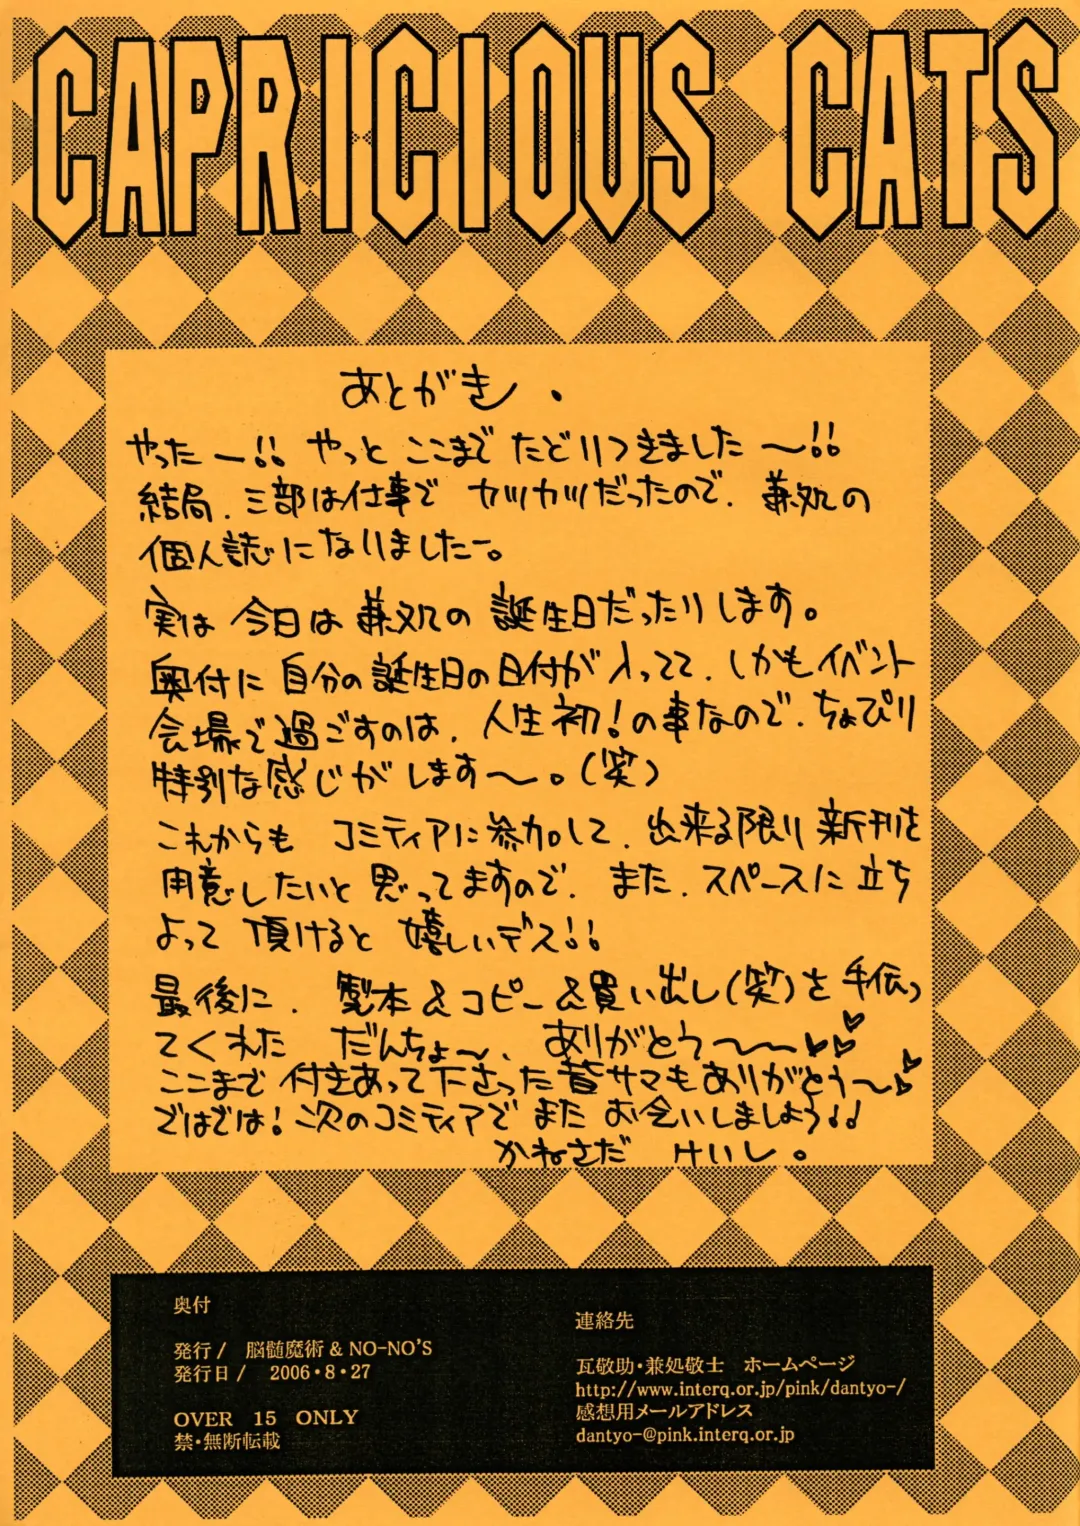 CAPRICIOUS CATS
あとがき.
やったー!! やっと ここまで たどりつきました〜!!
結局、三部は仕事で カツカツだったので、兼処の
個人誌になりましたー。
実は 今日は 兼処の 誕生日だったりします。
奥付に 自分の誕生日の日付が入ってて、しかもイベント
会場で過ごすのは、人生初!の事なので、ちょぴり
特別な感じがします〜。(笑)
これからも コミティアに参加して、出来る限り 新刊を
用意したいと 思ってますので、また、スペースに立ち
よって 頂けると 嬉しいデス!!
最後に、製本&コピー&買い出し(笑)を手伝っ
てくれた だんちょ〜、ありがとう〜〜♥♥♥
ここまで 付きあって下さった皆サマもありがとう〜♥♥
ではでは!次のコミティアで また お会いしましょう!!
かねさだ けいし。
奥付
発行/ 脳髄魔術 & NO-NO'S
発行日/ 2006・8・27
OVER 15 ONLY
禁・無断転載
連絡先
瓦敬助・兼処敬士 ホームページ
http://www.interq.or.jp/pink/dantyo-/
感想用メールアドレス
dantyo-@pink.interq.or.jp